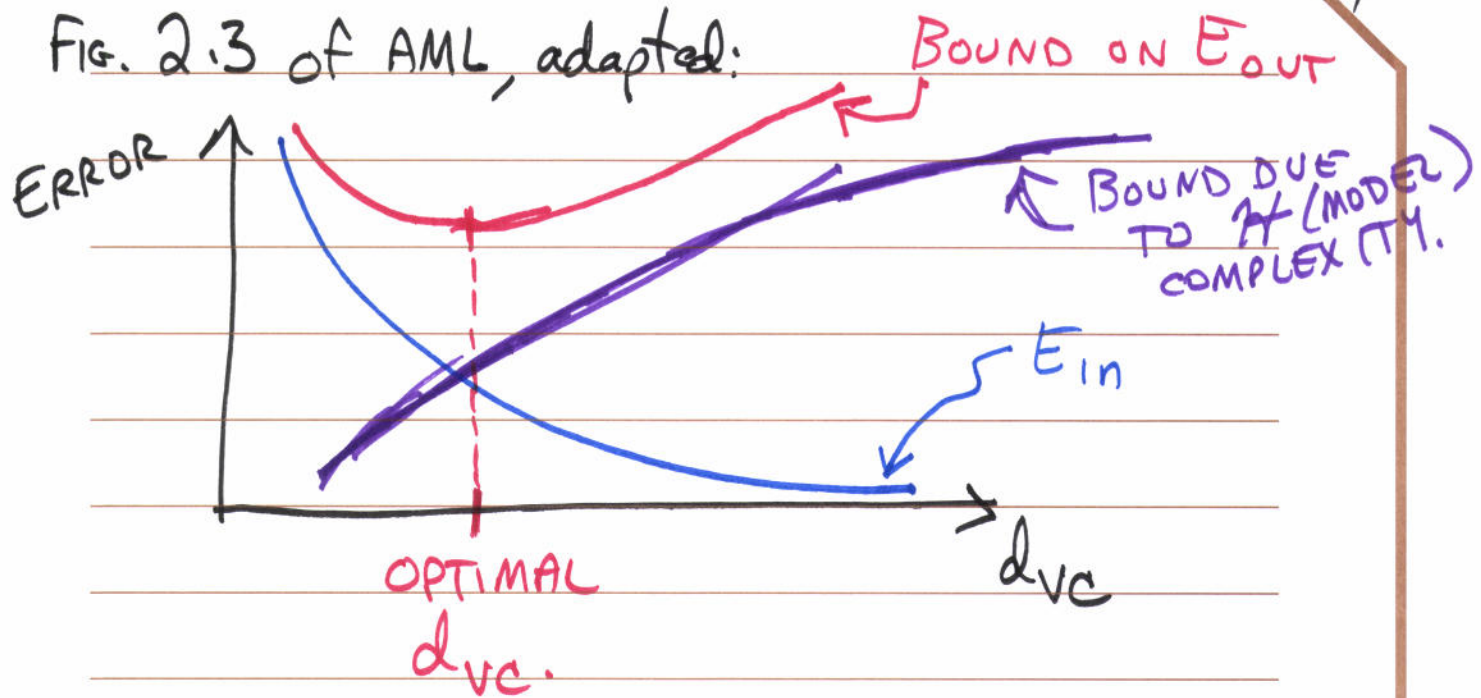 FIG. 2.3 of AML, adapted:
BOUND ON E OUT
ERROR
BOUND DUE
TO H (MODEL)
COMPLEXITY.
E in
d VC
OPTIMAL
d VC.